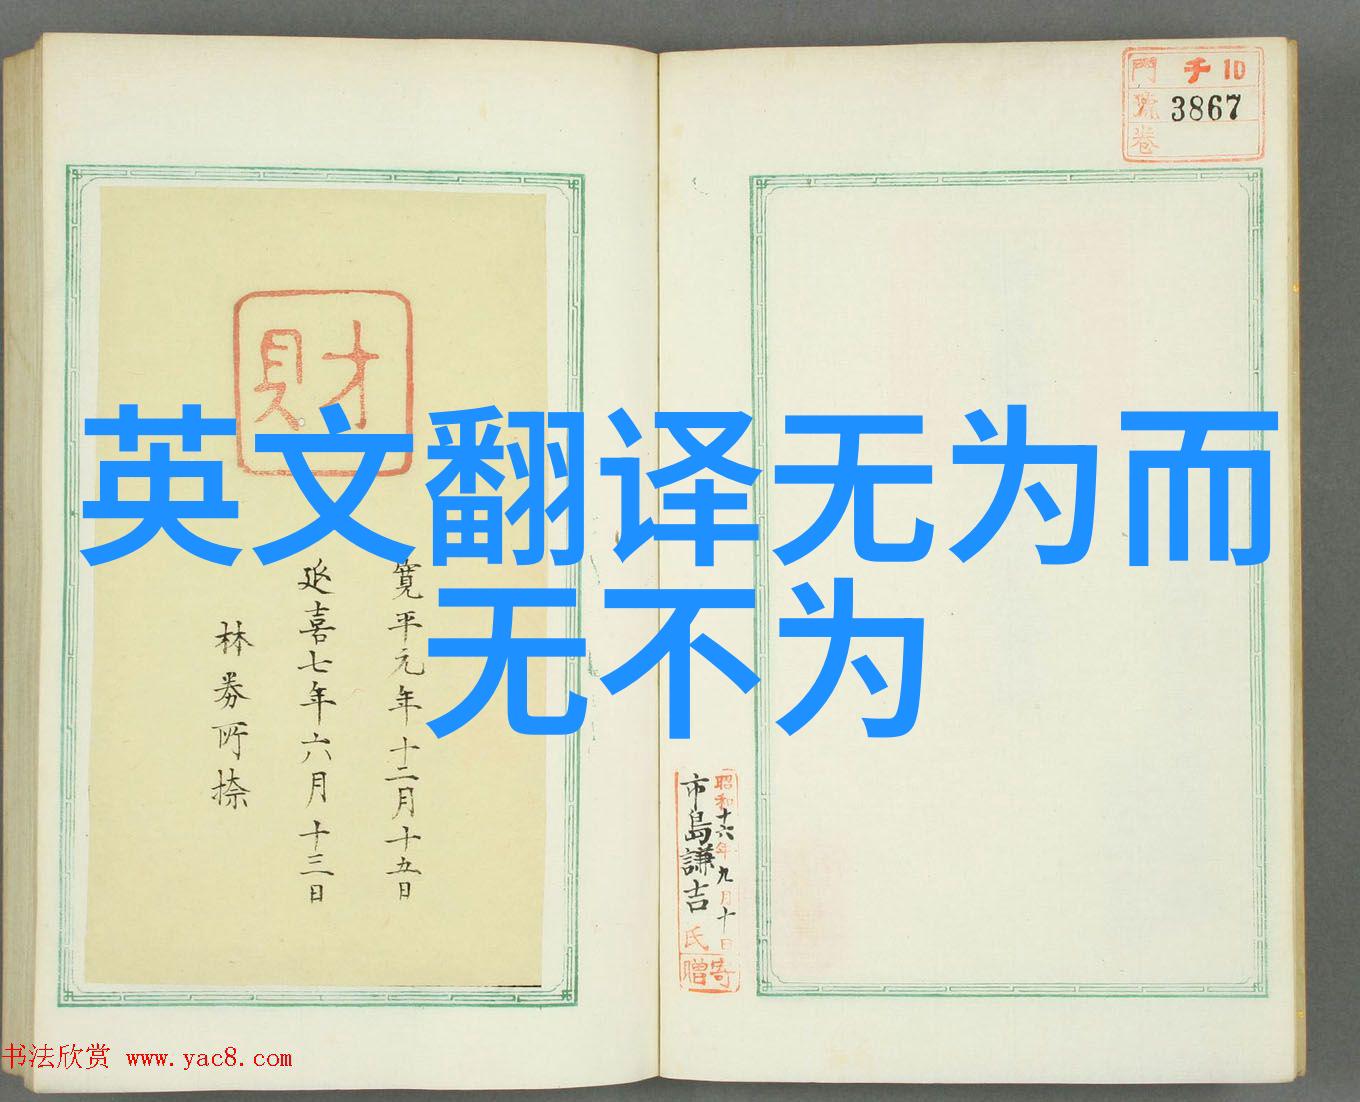 門 千10
號 3867
卷
財
英文翻译无为而
无不为
寛平元年十二月十五日
延喜七年六月十三日
林券所捺
昭和十六年九月十日
市島謙吉氏
寄贈
书法欣赏 www.yac8.com